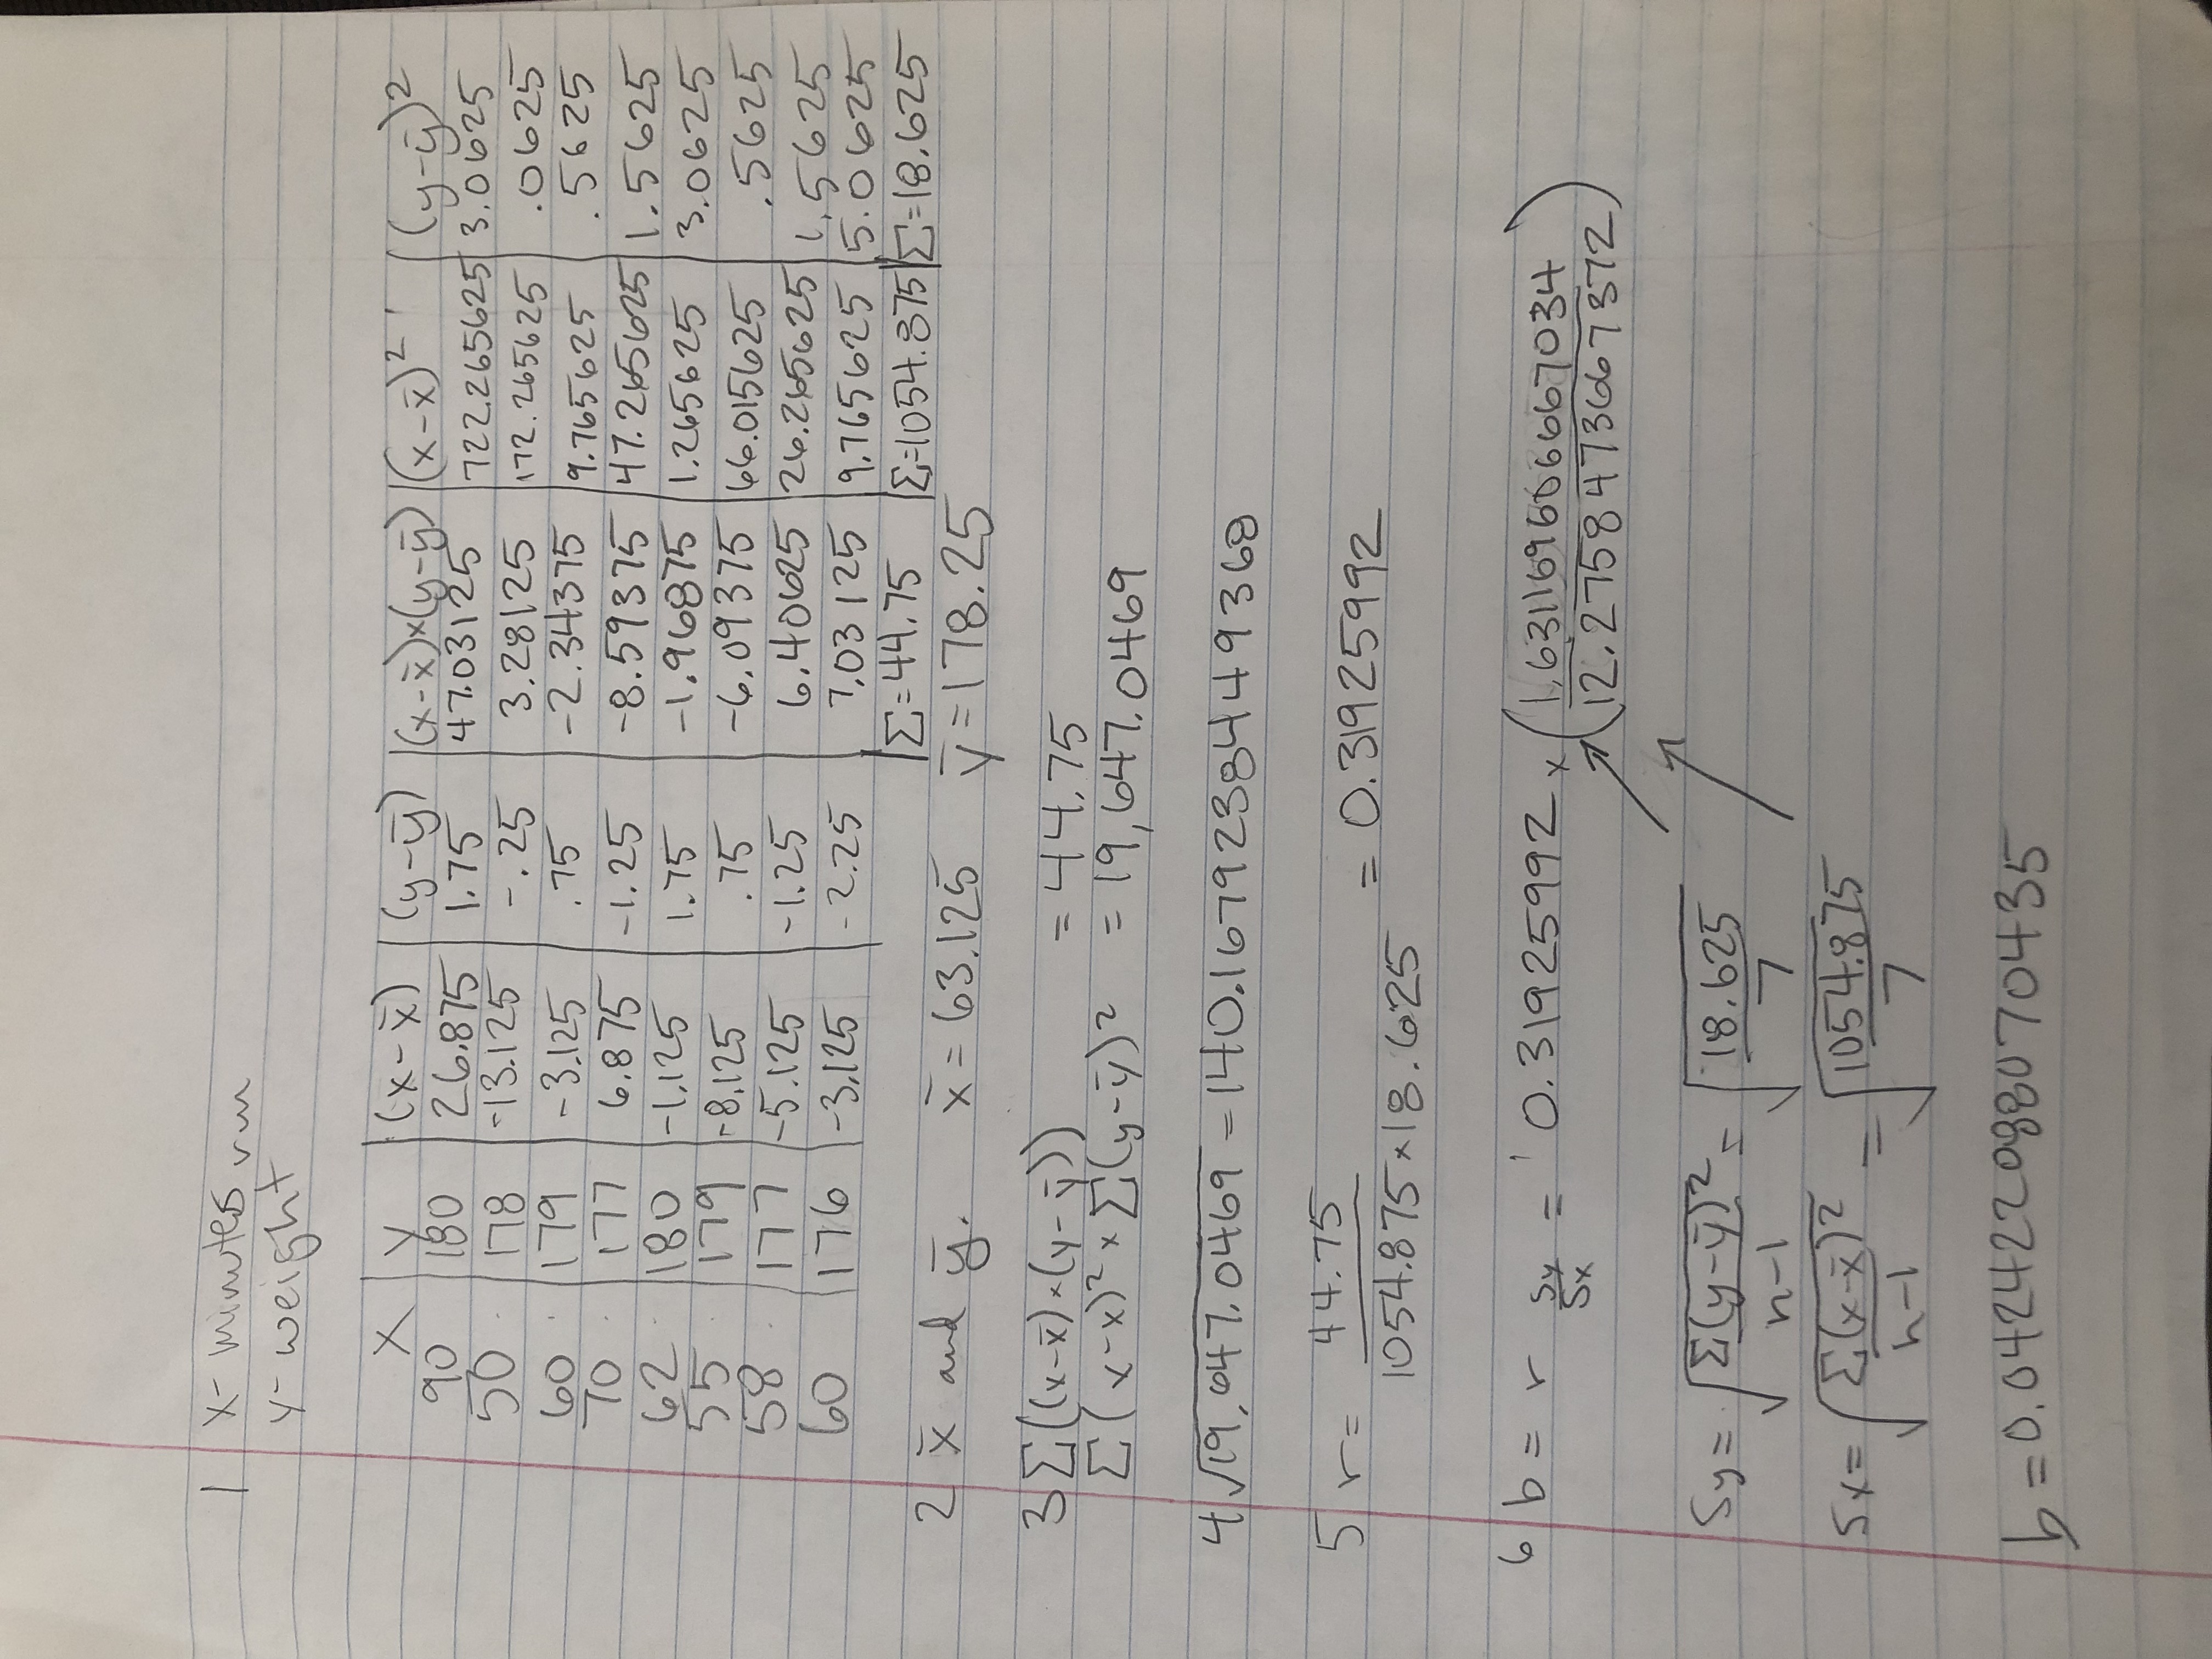 1 x- minutes run
y- weight
x | y | (x-x̄) | (y-ȳ) | (x-x̄)×(y-ȳ) | (x-x̄)² | (y-ȳ)²
90 | 180 | 26.875 | 1.75 | 47.03125 | 722.265625 | 3.0625
50 | 178 | -13.125 | -.25 | 3.28125 | 172.265625 | .0625
60 | 179 | -3.125 | .75 | -2.34375 | 9.765625 | .5625
70 | 177 | 6.875 | -1.25 | -8.59375 | 47.265625 | 1.5625
62 | 180 | -1.125 | 1.75 | -1.96875 | 1.265625 | 3.0625
55 | 179 | -8.125 | .75 | -6.09375 | 66.015625 | .5625
58 | 177 | -5.125 | -1.25 | 6.40625 | 26.265625 | 1.5625
60 | 176 | -3.125 | -2.25 | 7.03125 | 9.765625 | 5.0625
Σ=44.75 | Σ=1054.875 | Σ=18.625
2 x̄ and ȳ. x̄=63.125 ȳ=178.25
3 Σ((x-x̄)×(y-ȳ)) = 44.75
Σ(x-x)²×Σ(y-ȳ)² = 19,647.0469
4 √19,647.0469 = 140.16792384449368
5 r= 44.75 / 1054.875×18.625 = 0.31925992
6 b = r Sy/Sx = 0.31925992 × (1.631169606667034 / 12.2758473667372)
Sy= √Σ(y-ȳ)²/n-1 = √18.625/7
Sx= √Σ(x-x̄)²/n-1 = √1054.875/7
b=0.042422088070435